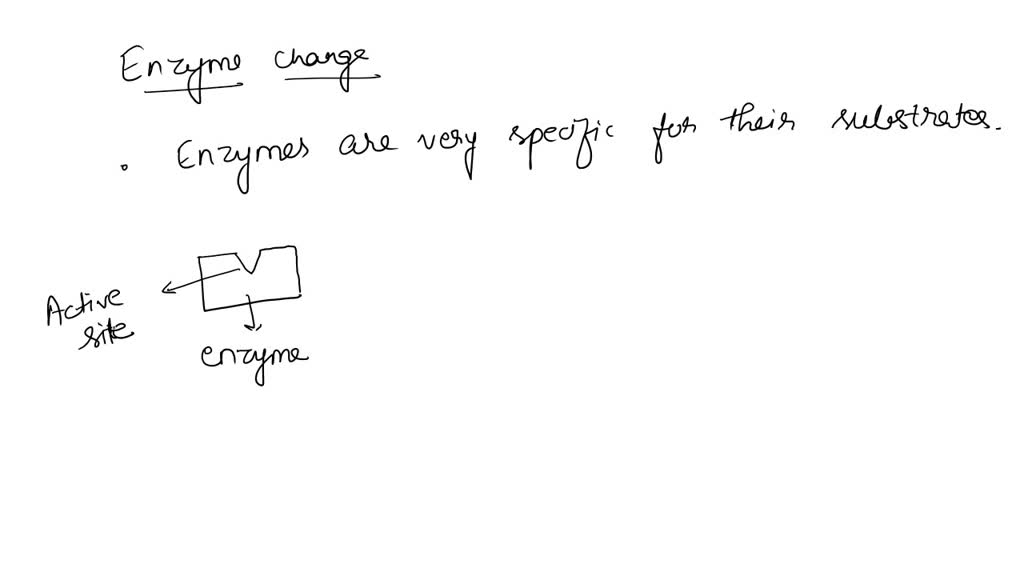 Enzyme change
. Enzymes are very specific for their substrates.
Active
site
enzyme